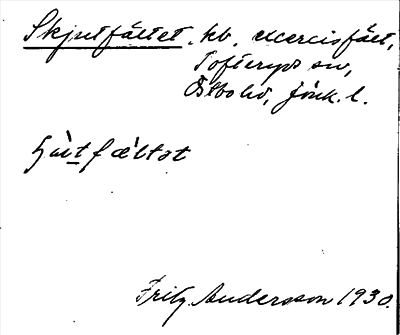 Skjutfältet, kb, exercisfält,
Tofteryds sn,
Östbo hd, Jönk. l.
Fritz Andersson 1930.